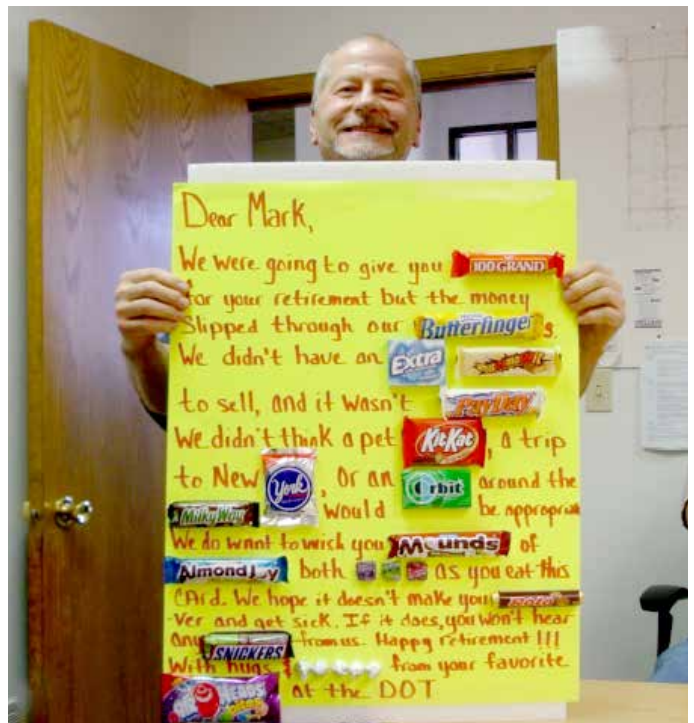 Dear Mark,
We were going to give you 100 GRAND
for your retirement but the money
Slipped through our Butterfinger s.
We didn't have an Extra
to sell, and it wasn't PayDay
We didn't think a pet KitKat, a trip
to New York, or an Orbit around the
Milky Way would be appropriate
We do want to wich you Mounds of
Almond Joy both as you eat this
CArd. We hope it doesn't make you Rolo
-ver and get sick. If it does, you won't hear
any SNICKERS from us. Happy retirement !!!
With hugs & from your favorite
AIRHEADS bites at the DOT